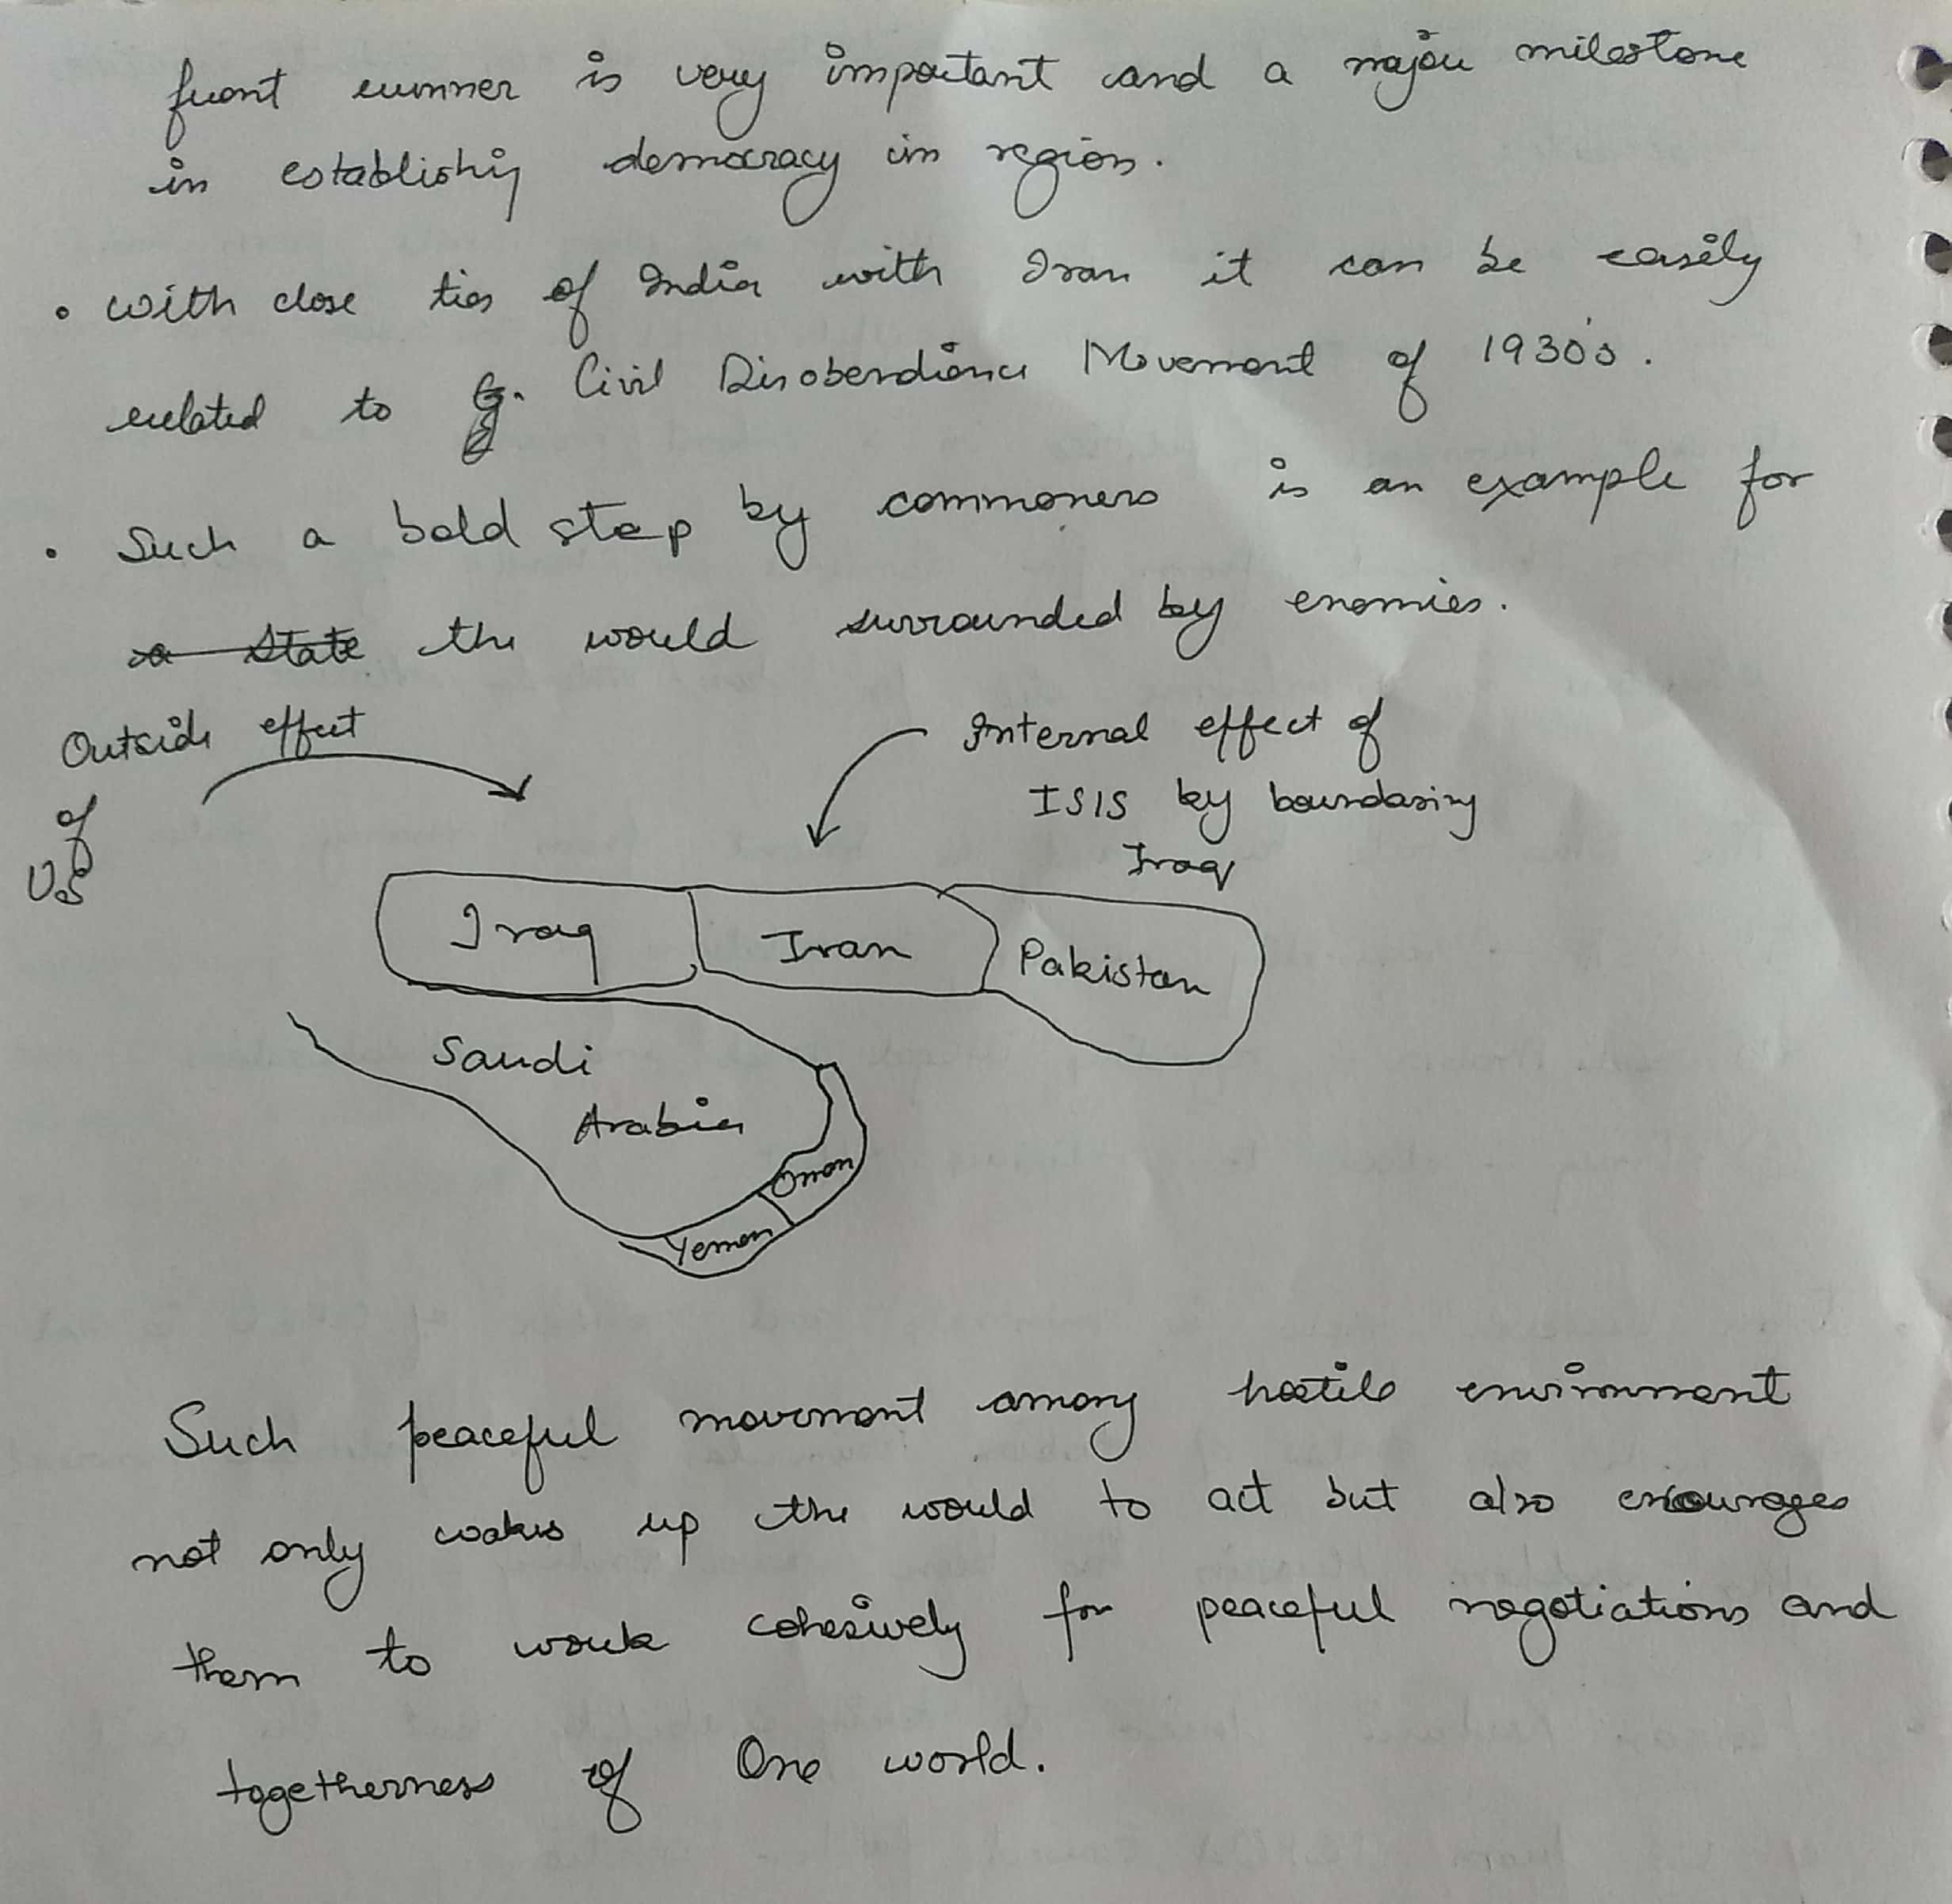 front runner is very important and a major milestone
in establishig democracy in region.
• With close ties of India with Iran it can be easily
related to Civil Disobendience Movement of 1930's.
• Such a bold step by commoners is an example for
a State the world surrounded by enemies.
Outside effect
of
US
Internal effect of
ISIS by boundasing
Iraq
Iraq
Iran
Pakistan
Saudi
Arabia
Oman
Yemen
Such peaceful movement among hostile environment
not only wakes up the world to act but also encourages
them to work cohesively for peaceful negotiations and
togetherness of One world.